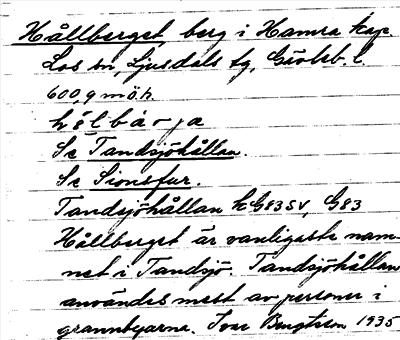 Hållberget, berg i Hamra kap.
Los sn, Ljusdals tg, Gävleb. l.
600,9 m ö. h.
Se Tandsjöhållan.
Se Sionsfur.
Tandsjöhållan k G83SV, G83
Hållberget är vanligaste nam-
net i Tandsjö. Tandsjöhållan
användes mest av personer i
grannbyarna. Ivar Bengtsson 1935